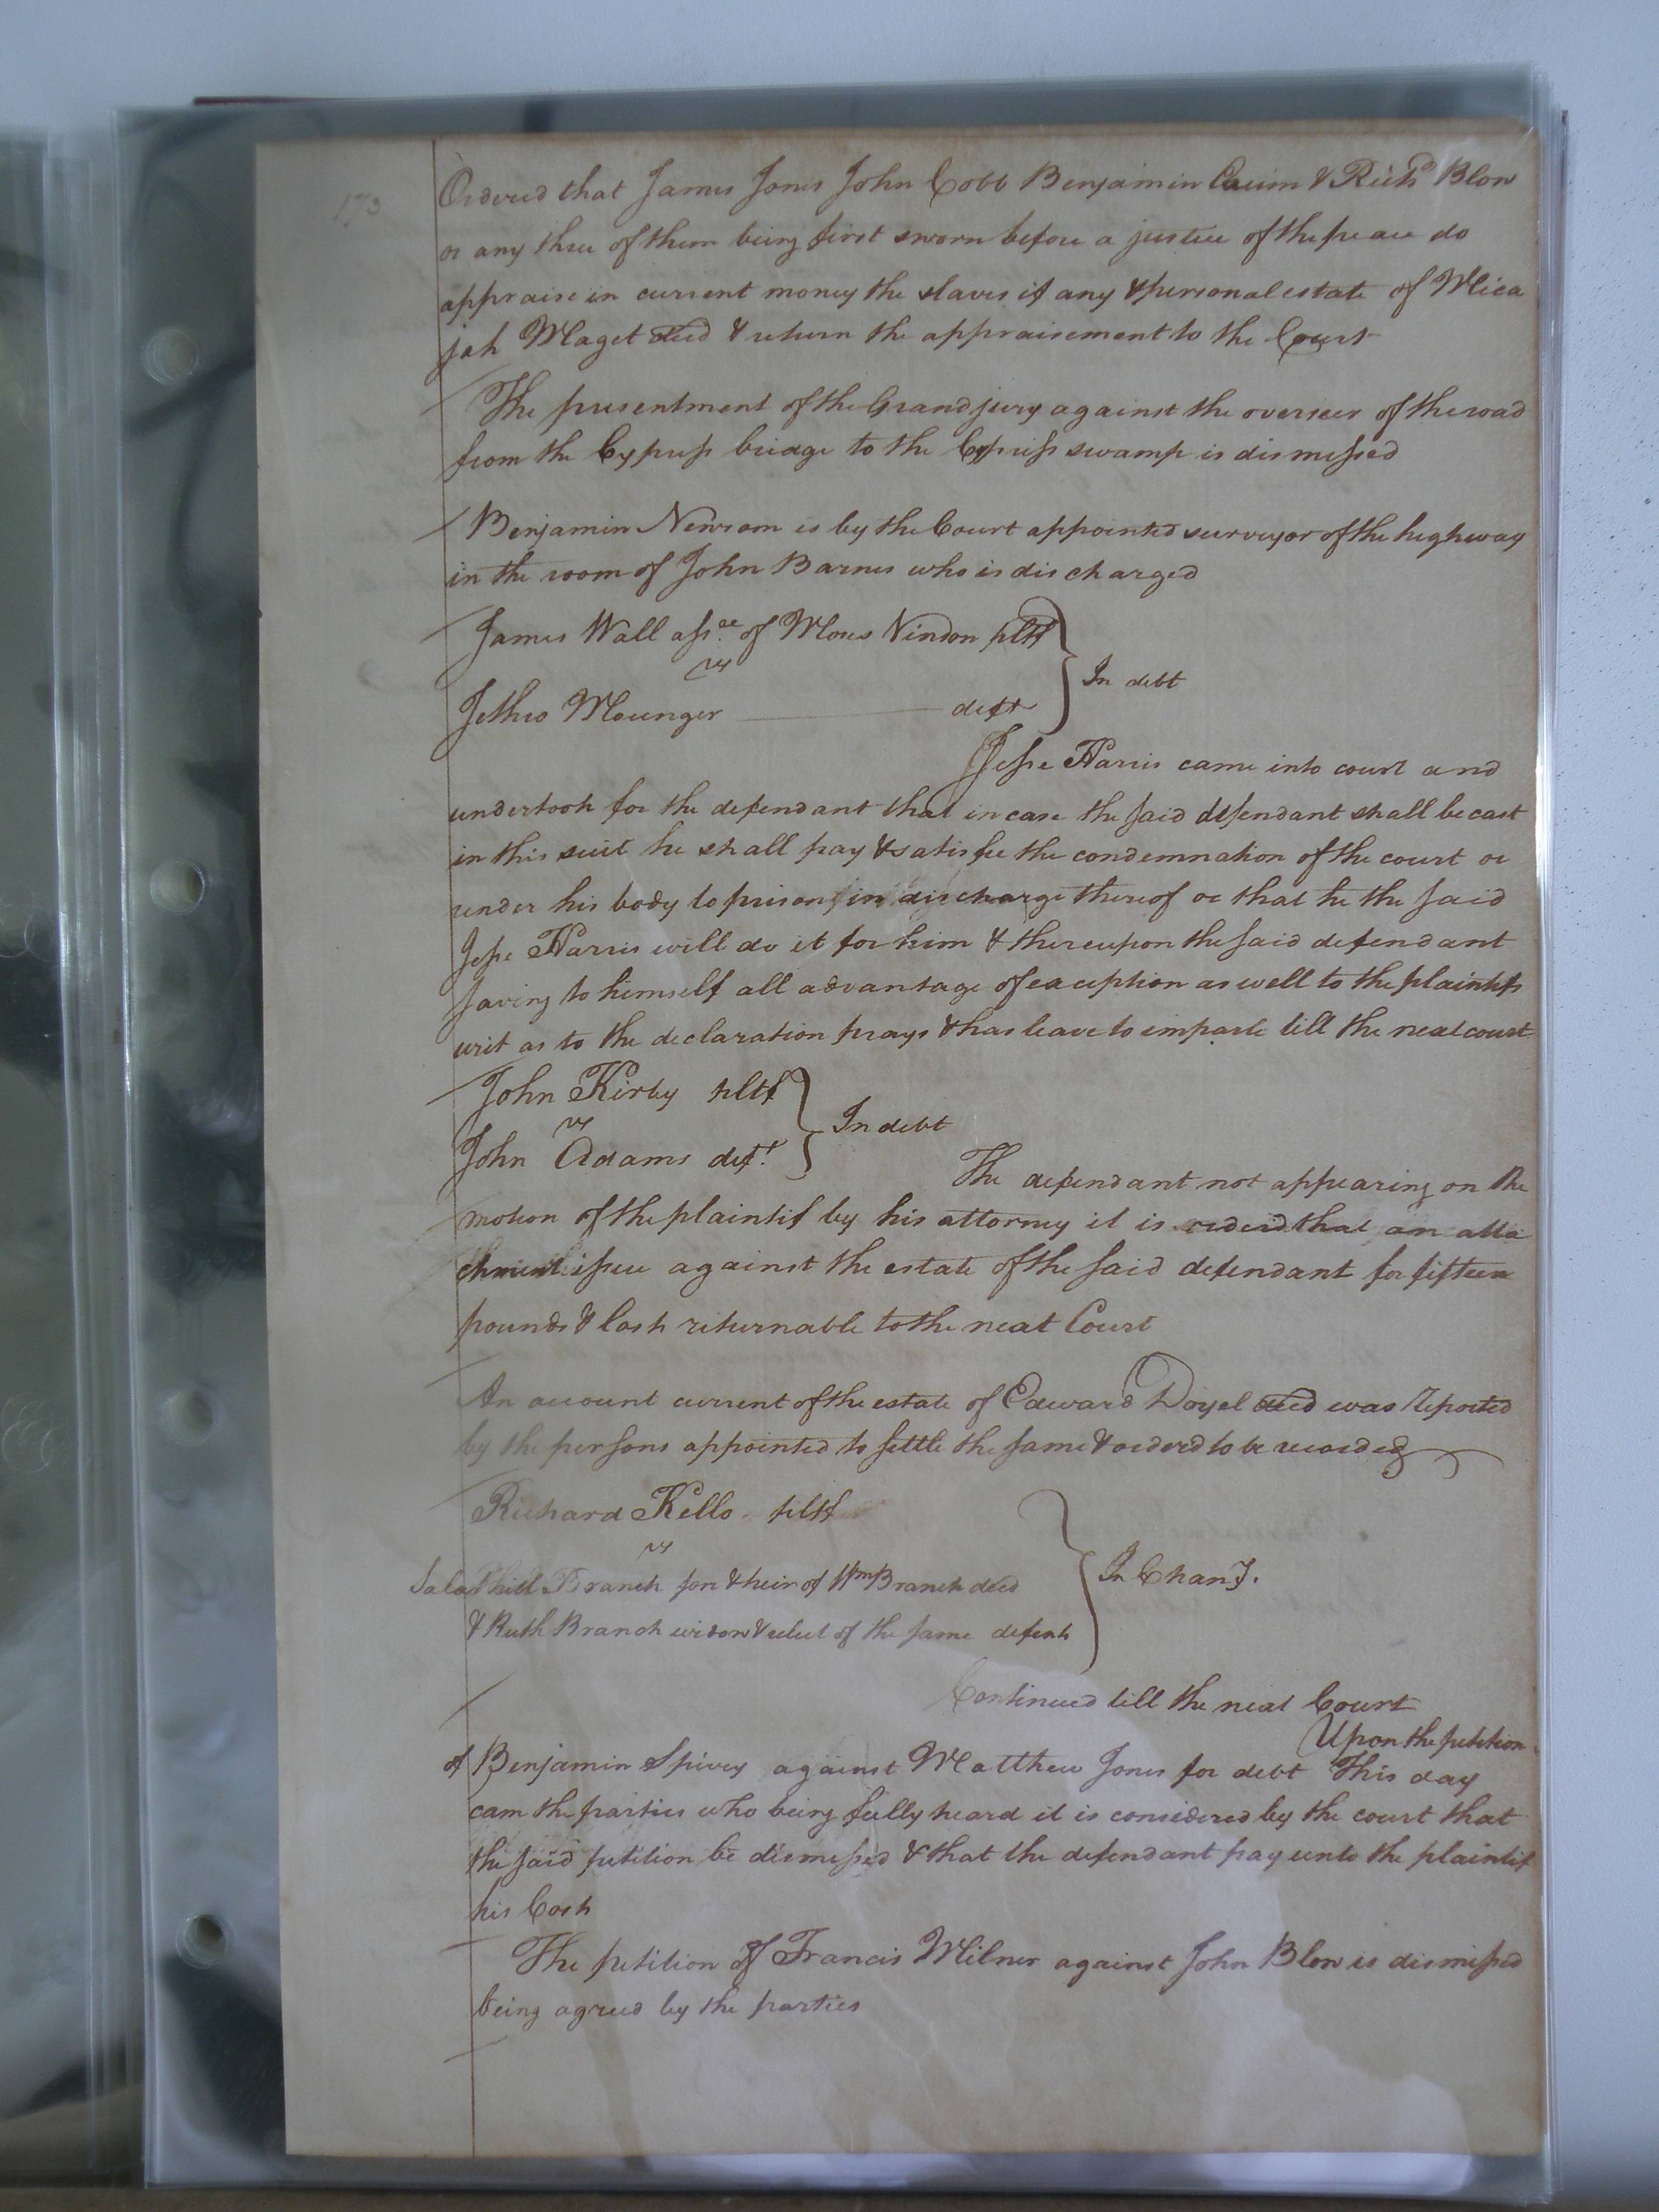 173
Ordered that James Jones John Cobb Benjamin Crum & Richd Blow
or any three of them being first sworn before a justice of the peace do
appraise in current money the slaves if any & personal estate of Mica
jah Maget decd & return the appraisement to the Court
The presentment of the Grand jury against the overseer of the road
from the Cypress bridge to the Cypress swamp is dismissed
Benjamin Newsom is by the Court appointed surveyor of the highway
in the room of John Barnes who is discharged
James Wall assee of Moses Vindon pltf
vs
In debt
Jethro Mounger deft
Jesse Harris came into court and
undertook for the defendant that in case the said defendant shall be cast
in this suit he shall pay & satisfie the condemnation of the court or
render his body to prison in discharge thereof or that he the said
Jesse Harris will do it for him & thereupon the said defendant
saving to himself all advantage of exception as well to the plaintifs
writ as to the declaration prays & has leave to imparle till the next court
John Kirby pltf
vs
In debt
John Adams deft
The defendant not appearing on the
motion of the plaintif by his attorney it is orderd that an atta
chment issue against the estate of the said defendant for fifteen
pounds & Costs returnable to the next Court
An account current of the estate of Edward Doyel decd was reported
by the persons appointed to settle the same & orderd to be recorded
Richard Kello pltf
vs
Branch son & heir of Wm Branch decd
In Chany.
& Ruth Branch widow & relict of the same defents
Continued till the next Court
Upon the petition
of Benjamin Spivey against Matthew Jones for debt This day
cam the parties who being fully heard it is considered by the court that
the said petition be dismissed & that the defendant pay unto the plaintif
his Costs
The petition of Francis Milner against John Blow is dismissed
being agreed by the parties